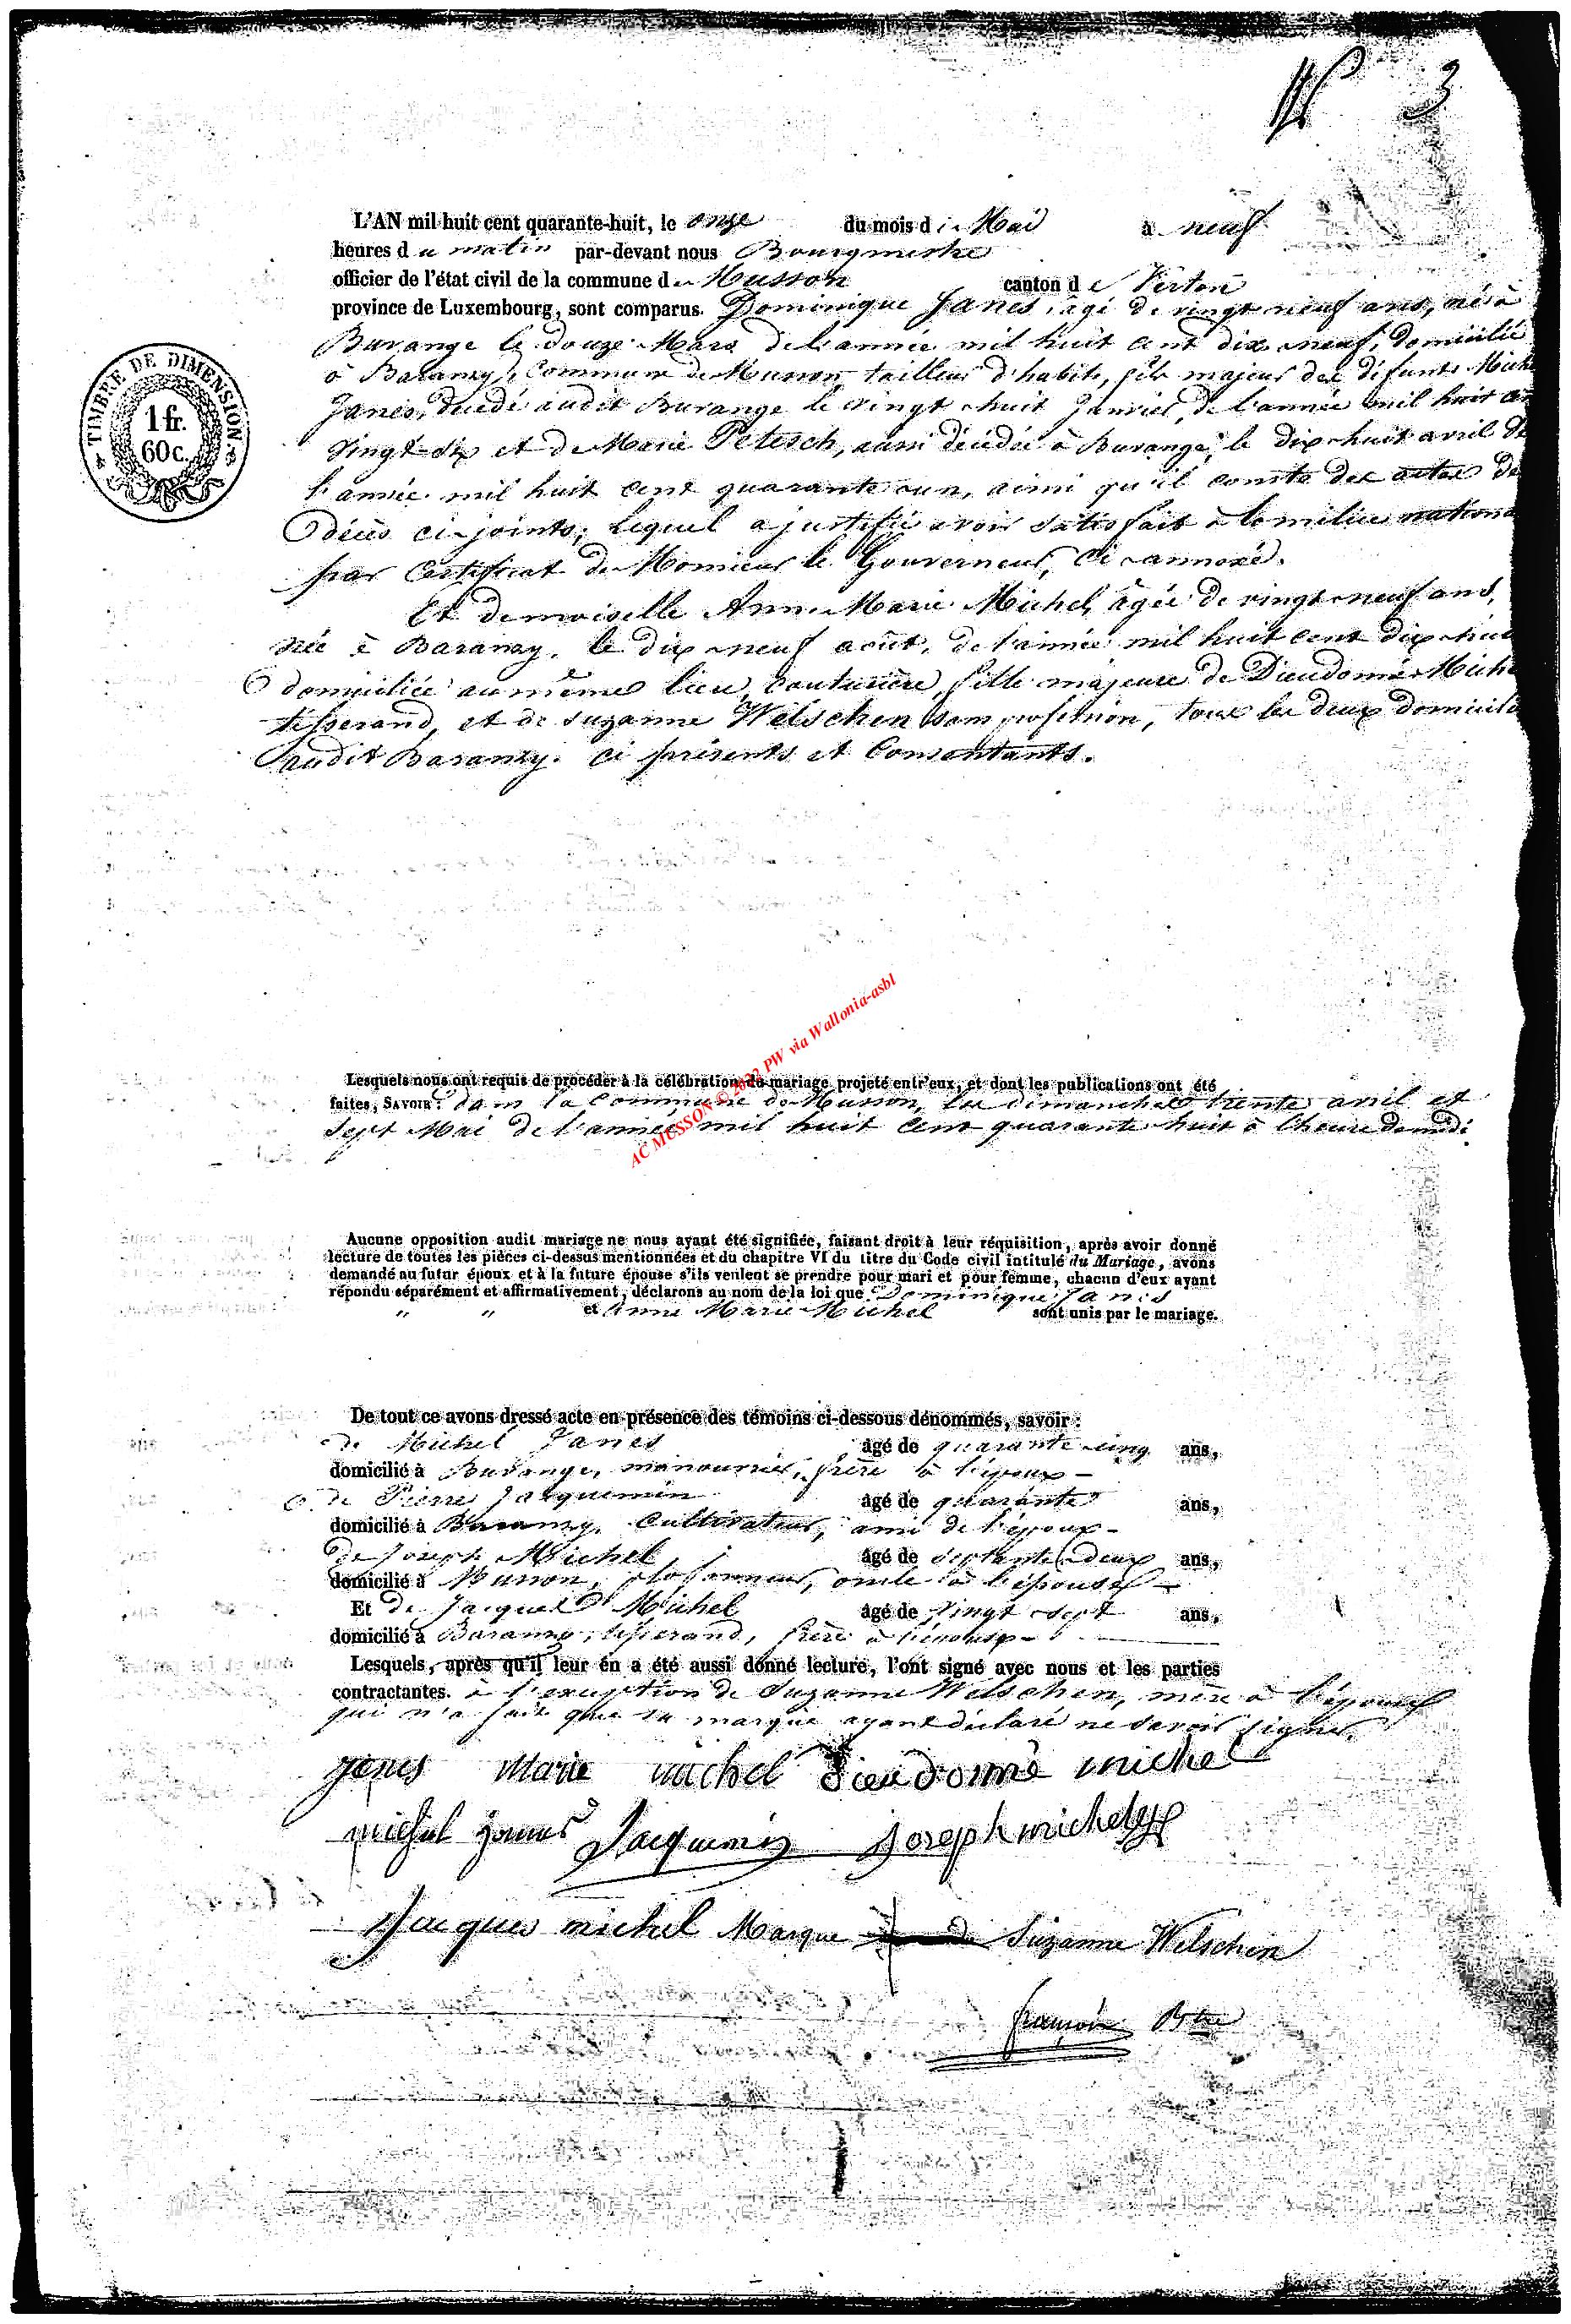 N° 3
L'AN mil huit cent quarante-huit, le onze du mois de Mai à neuf
heures du matin par-devant nous Bourgmestre
officier de l'état civil de la commune de Musson canton de Virton
province de Luxembourg, sont comparus. Dominique Janes, âgé de vingt neuf ans, né à
Burange le douze Mars de l'année mil huit cent dix neuf, domicilié
à Baranzy, Commune de Musson, tailleur d'habits, fils majeur des défunts Miche
Janes, décédé audit Burange le vingt huit Janvier, de l'année mil huit cen
vingt-six et de Marie Petesch, aussi décédée à Burange, le dix-huit avril de
l'année mil huit cent quarante un, ainsi qu'il conste des actes de
décès ci-joints; lequel a justifié avoir satisfait à la milice nationa
par Certificat de Monsieur le Gouverneur, ci-annexé.
Et demoiselle Anne Marie Michel, âgée de vingt neuf ans,
née à Baranzy, le dix neuf août, de l'année mil huit cent dix huit
domiciliée au même lieu, couturière, fille majeure de Dieudonné Miche
tisserand, et de Suzanne Welschen sans profession, tous les deux domicilié
audit Baranzy. ci présents et Consentants.
TIMBRE DE DIMENSION.
1 fr.
60 c.
AC MUSSON © 2022 PW via Wallonia-asbl
Lesquels nous ont requis de procéder à la célébration du mariage projeté entr'eux, et dont les publications ont été
faites, SAVOIR: dans la commune de Musson, les dimanches trente avril et
sept Mai de l'année mil huit cent quarante huit à l'heure de midi
Aucune opposition audit mariage ne nous ayant été signifiée, faisant droit à leur réquisition, après avoir donné
lecture de toutes les pièces ci-dessus mentionnées et du chapitre VI du titre du Code civil intitulé du Mariage, avons
demandé au futur époux et à la future épouse s'ils veulent se prendre pour mari et pour femme, chacun d'eux ayant
répondu séparément et affirmativement, déclarons au nom de la loi que Dominique Janes
" " et Anne Marie Michel sont unis par le mariage.
De tout ce avons dressé acte en présence des témoins ci-dessous dénommés, savoir:
de Michel Janes âgé de quarante cinq ans,
domicilié à Burange, manouvrier, frère à l'époux -
de Pierre Jacquemin âgé de quarante ans,
domicilié à Baranzy, cultivateur, ami de l'époux -
de Joseph Michel, âgé de septante deux ans,
domicilié à Musson, plafonneur, oncle à l'épouse -
Et de Jacques Michel âgé de vingt sept ans,
domicilié à Baranzy, tisserand, frère à l'épouse -
Lesquels, après qu'il leur en a été aussi donné lecture, l'ont signé avec nous et les parties
contractantes. à l'exception de Suzanne Welschen, mère à l'épouse
qui n'a fait que sa marque ayant déclaré ne savoir signer.
Janes Marie Michel Dieudonné michel
michel Janes Jacquemin Joseph michel
Jacques michel Marque de Suzanne Welschen